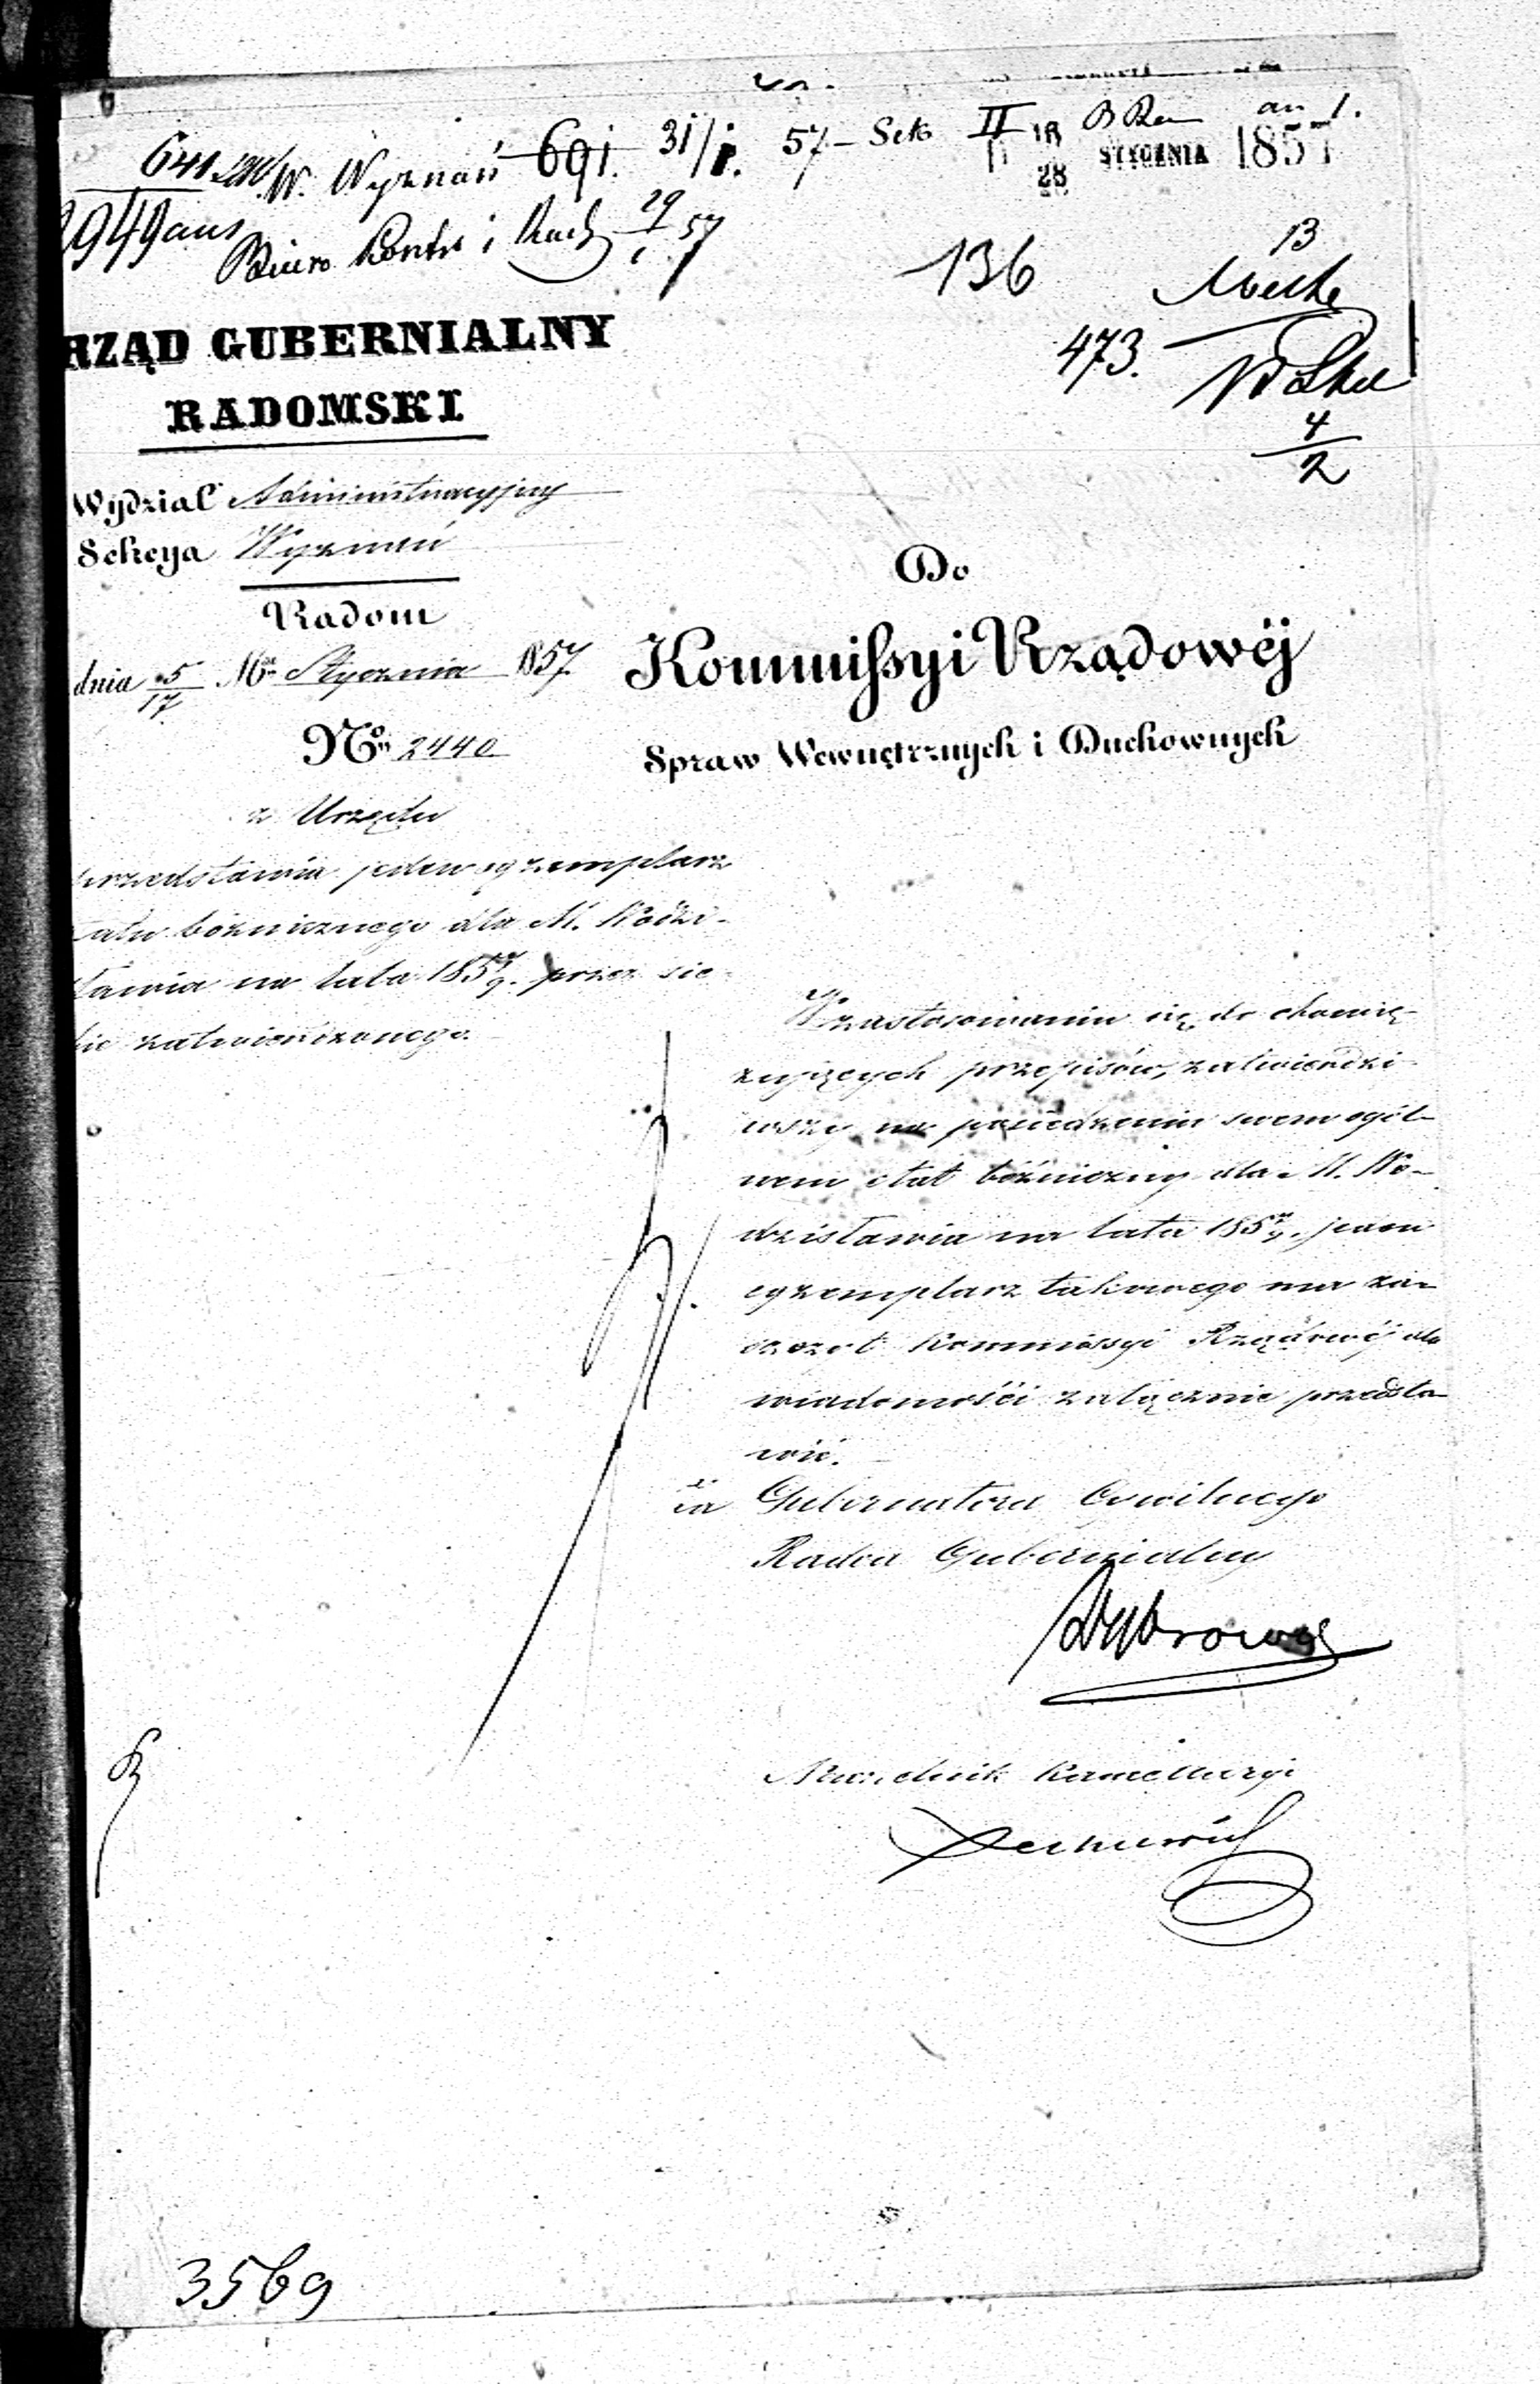 641 W. Wyznań 691. 31/1. 57 – Sek II
18/28 STYCZNIA 1857
2949
Biuro Kontr i Rach 29/1 57
136
13
473.
4/2
RZĄD GUBERNIALNY
RADOMSKI
Wydział Administracyjny
Sekcya Wyznań
Radom
dnia 5/17 Mca Stycznia 1857
No 2440
z Urzędu
przedstawia jeden egzemplarz
tatu bóżnicznego dla M. Wodzi-
sławia na lata 1857/9. przez sie-
bie zatwierdzonego.
Do
Kommissyi Rządowéj
Spraw Wewnętrznych i Duchownych
W zastosowaniu się do obowię-
zujących przepisów, zatwierdzi-
wszy na posiedzeniu swem ogól-
nem etat bóżniczny dla M. Wo-
dzisławia na lata 1857/9. jeden
egzemplarz takowego ma za-
szczyt Kommissyi Rządowéj do
wiadomości załącznie przedsta-
wić.
za Gubernatora Cywilnego
Radca Gubernialny
Naczelnik Kancellaryi
3569